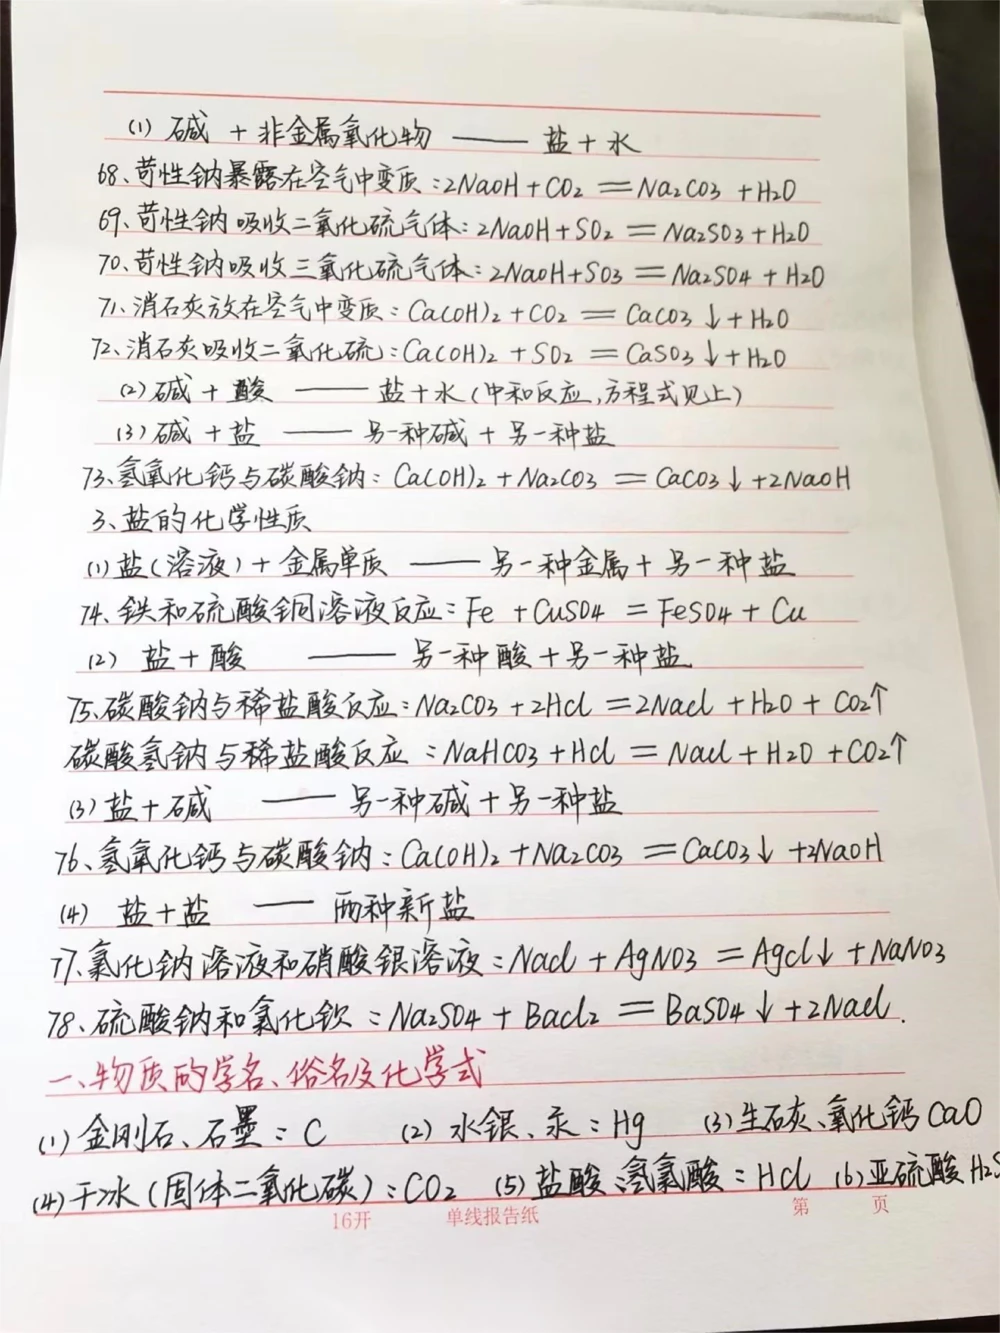 (1) 碱 + 非金属氧化物 —— 盐 + 水
68、苛性钠暴露在空气中变质：2NaOH + CO2 = Na2CO3 + H2O
69、苛性钠吸收二氧化硫气体：2NaOH + SO2 = Na2SO3 + H2O
70、苛性钠吸收三氧化硫气体：2NaOH + SO3 = Na2SO4 + H2O
71、消石灰放在空气中变质：Ca(OH)2 + CO2 = CaCO3↓ + H2O
72、消石灰吸收二氧化硫：Ca(OH)2 + SO2 = CaSO3↓ + H2O
(2) 碱 + 酸 —— 盐 + 水 (中和反应,方程式见上)
(3) 碱 + 盐 —— 另一种碱 + 另一种盐
73、氢氧化钙与碳酸钠：Ca(OH)2 + Na2CO3 = CaCO3↓ + 2NaOH
3、盐的化学性质
(1) 盐(溶液) + 金属单质 —— 另一种金属 + 另一种盐
74、铁和硫酸铜溶液反应：Fe + CuSO4 = FeSO4 + Cu
(2) 盐 + 酸 —— 另一种酸 + 另一种盐
75、碳酸钠与稀盐酸反应：Na2CO3 + 2HCl = 2NaCl + H2O + CO2↑
碳酸氢钠与稀盐酸反应：NaHCO3 + HCl = NaCl + H2O + CO2↑
(3) 盐 + 碱 —— 另一种碱 + 另一种盐
76、氢氧化钙与碳酸钠：Ca(OH)2 + Na2CO3 = CaCO3↓ + 2NaOH
(4) 盐 + 盐 —— 两种新盐
77、氯化钠溶液和硝酸银溶液：NaCl + AgNO3 = AgCl↓ + NaNO3
78、硫酸钠和氯化钡：Na2SO4 + BaCl2 = BaSO4↓ + 2NaCl.
一、物质的学名、俗名及化学式
(1) 金刚石、石墨：C (2) 水银、汞：Hg (3) 生石灰、氧化钙 CaO
(4) 干冰(固体二氧化碳)：CO2 (5) 盐酸、氢氯酸：HCl (6) 亚硫酸 H2S
16开 单线报告纸 第 页